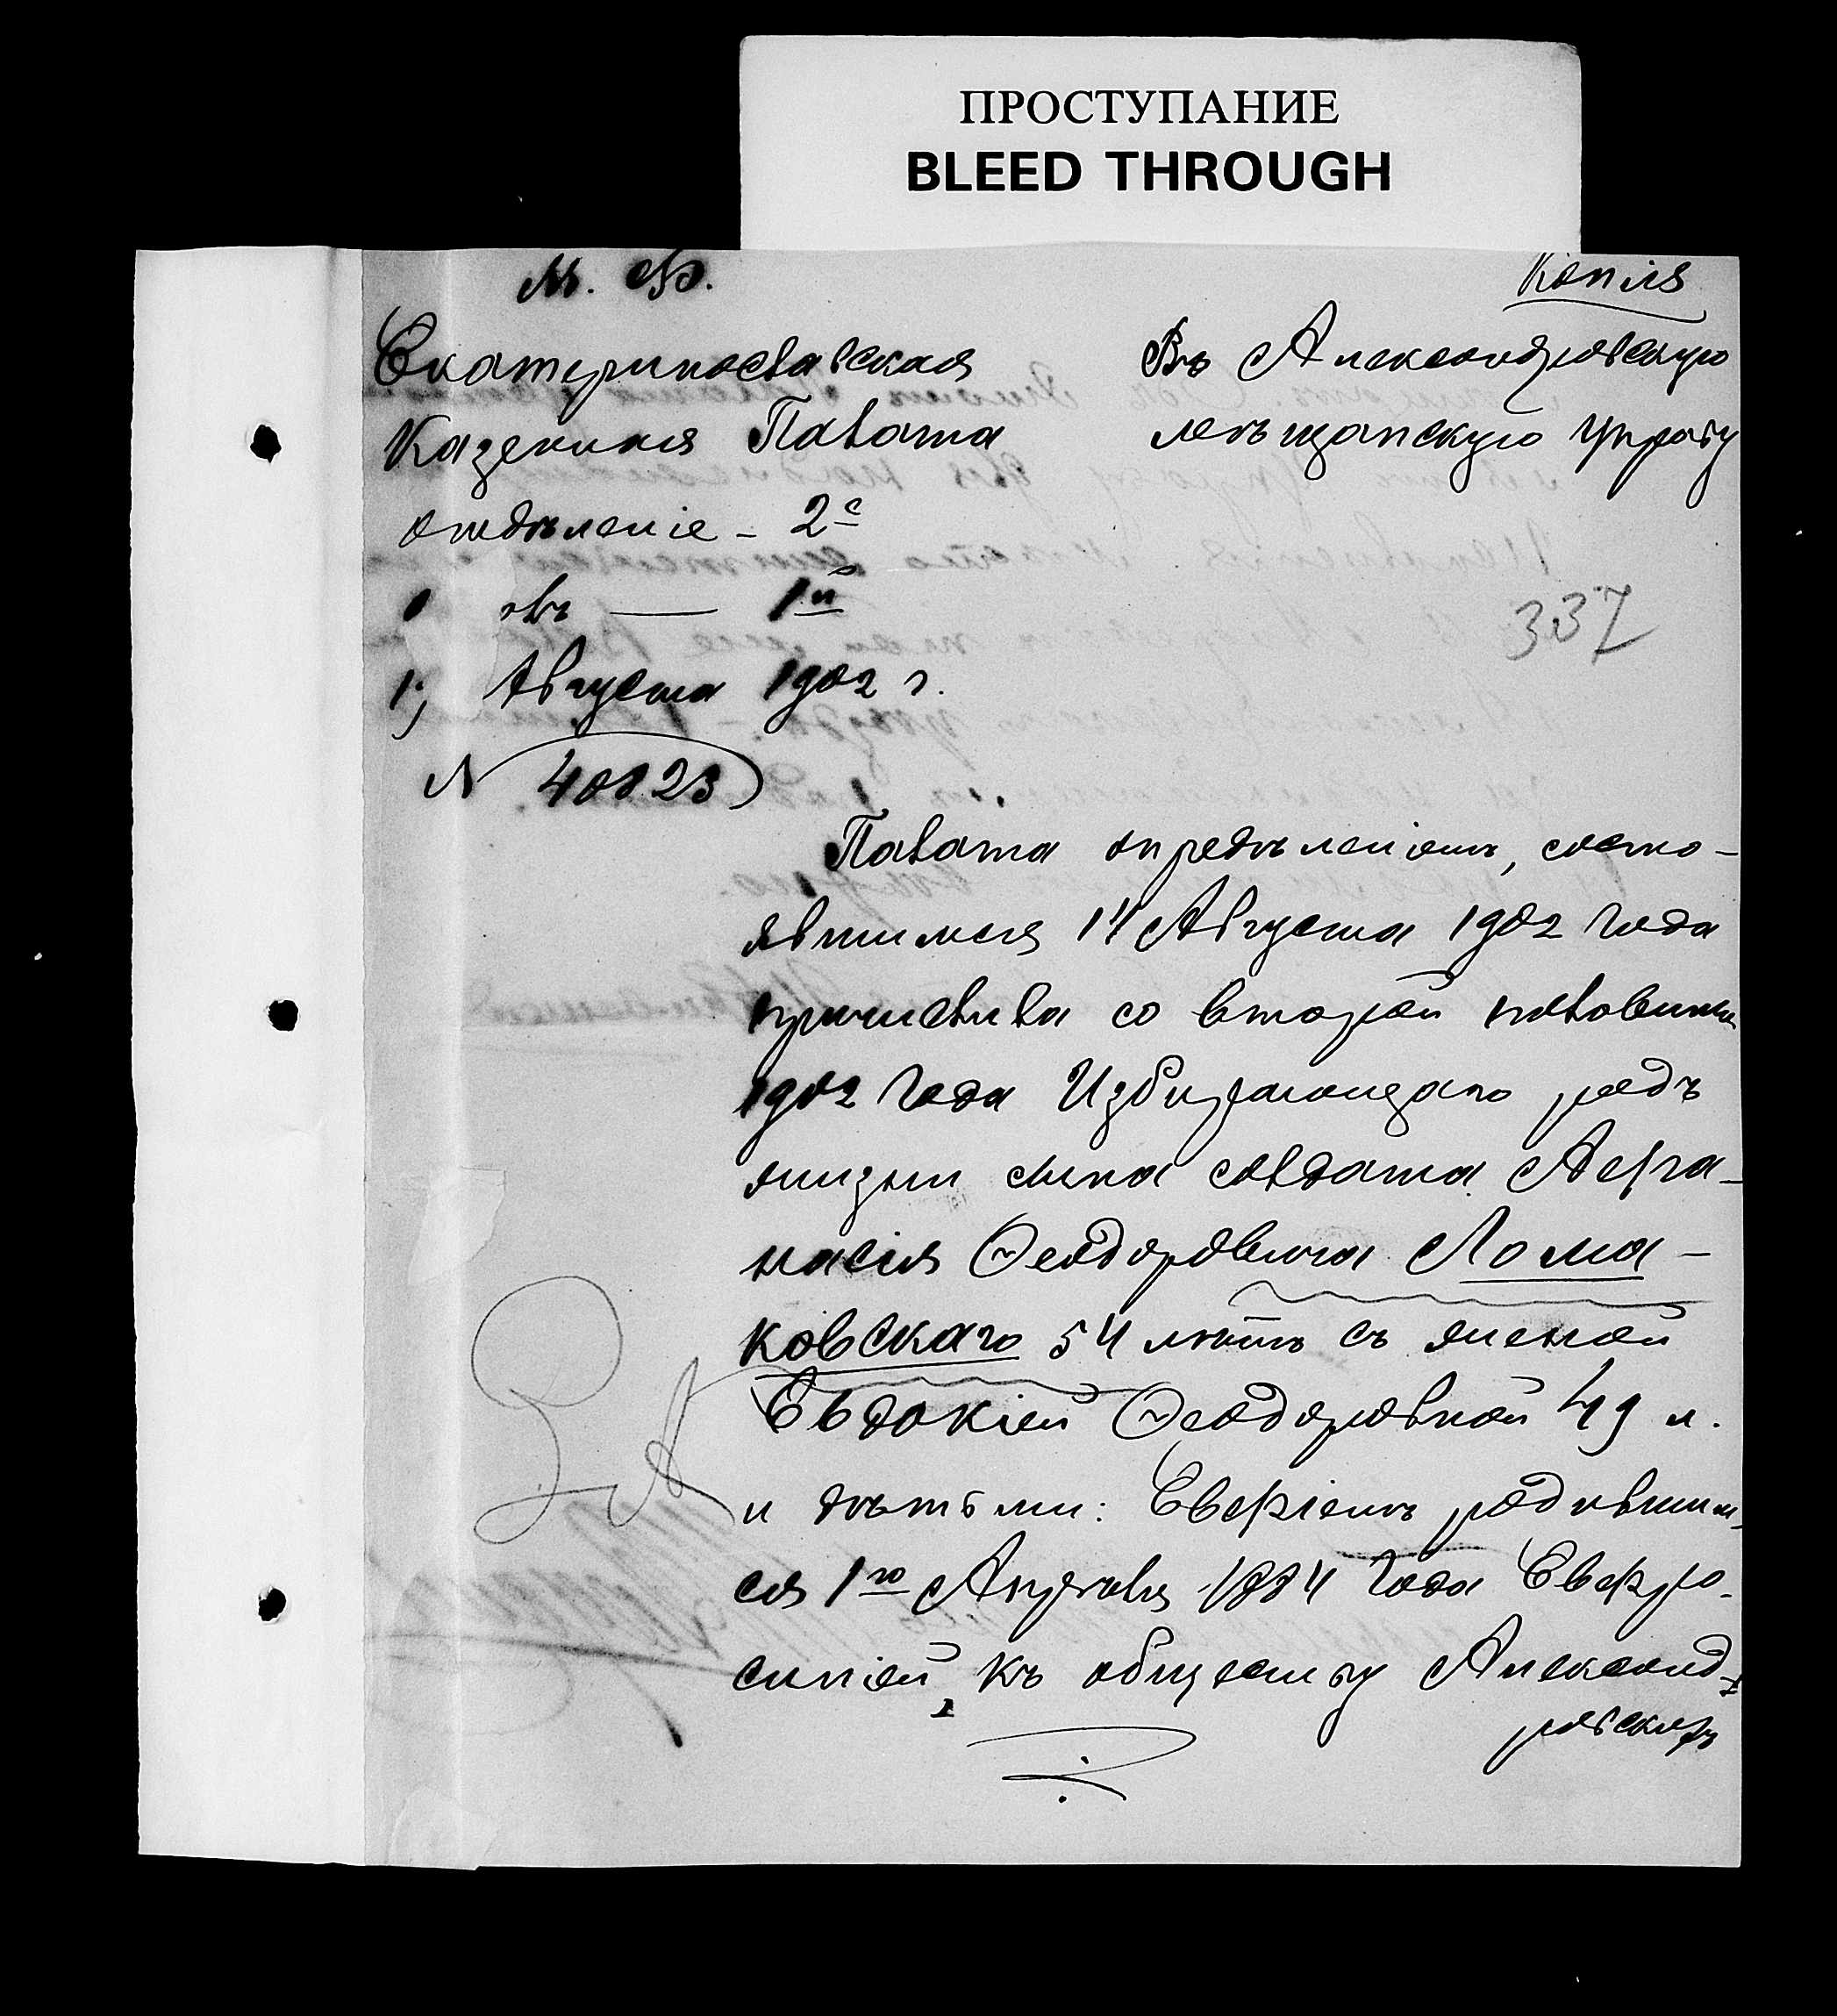 ПРОСТУПАНИЕ
BLEED THROUGH
М. Ф.
Копія
Екатеринославская
Казенная Палата
отдѣленіе - 2е
1й
Августа 1902 г.
N 40823
Въ Александровскую
мѣщанскую Управу
337
Палата опредѣленіемъ, состо-
явшимся 14 Августа 1902 года
причислила со второй половины
1902 года Избирающаго родъ
жизни сына солдата Аѳа-
насія Ѳеодоровича Лома-
ковскаго 54 лѣтъ съ женой
Евдокіей Ѳеодоровной 49 л.
и дѣтьми: родившим-
ся 1го Апрѣля 1884 года Евфро-
синіей, къ обществу Александ-
ровскихъ